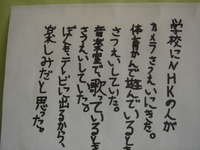 学校にNHKの人が
カメラさつえいにきた。
体育かんで遊んでいるところを
さつえいしていた。
音楽室で、歌っているところを
さつえいしていた。
ぼくも、テレビに出るから、
楽しみだと思った。